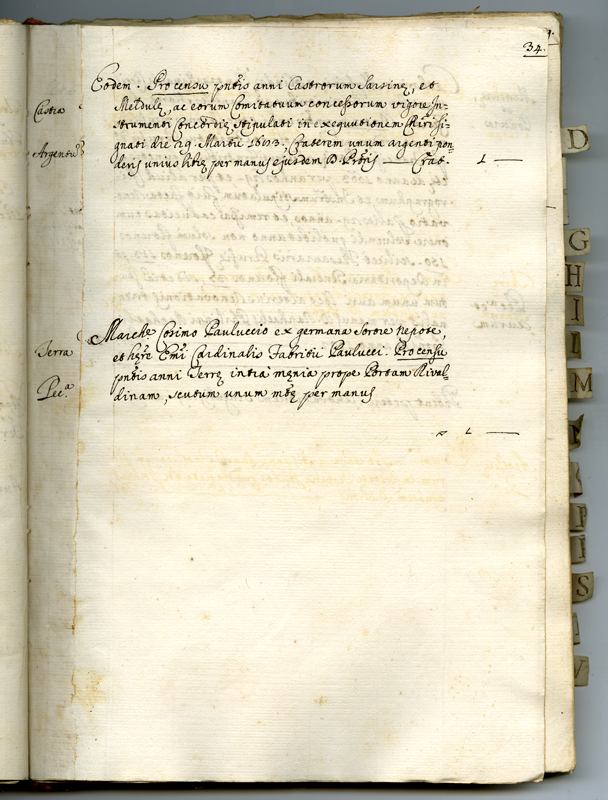 34.
Eodem. Pro censu pntis anni Castrorum Sarsinę, et
Castra
Meldulę, ac eorum Comitatuum concessorum vigore In-
strumenti Concordię stipulati in exequutionem Chiri si-
Argentū
gnati die 29 Martii 1603. Craterem unum argenti pon-
deris unius librę per manus ejusdem D. — Crat. 1 —
Marche Cosimo Pauluccio ex germana Sorore nepote,
Terra
et hęre Emi Cardinalis Fabritii Paulucci. Pro censu
pntis anni Terrę intra męnia prope Portam Rival-
Pec.a
dinam, scutum unum mtę per manus
1 —
D
G
H
I
L
M
P
S
V